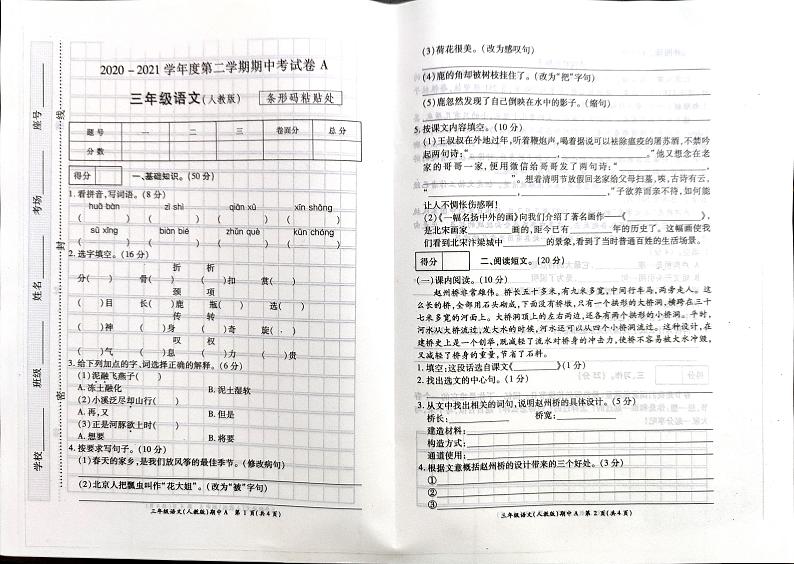 学校
班级
姓名
考场
座号
密
封
线
2020-2021学年度第二学期期中考试卷A
三年级语文(人教版) 条形码粘贴处
题号 一 二 三 卷面分 总分
分数
得分 一、基础知识。(50分)
1.看拼音,写词语。(8分)
huā bàn zī shì qiān xū xīn shǎng
( ) ( ) ( ) ( )
sù xīng biàn bié zhǔn què kūn chóng
( ) ( ) ( ) ( )
2.选字填空。(16分)
折 析
分( ) 骨( ) ( )扣 赏( )
颈 项
( )目 长( )鹿 瓶( ) 选( )
传 转
( )神 ( )身 ( )奇 旋( )
叹 权
( )气 ( )息 ( )力 ( )贵
3.给下列加点的字、词选择正确的解释。(6分)
(1)泥融飞燕子( )
A.冻土融化 B.泥土湿软
(2)小溪泛尽却山行( )
A.再,又 B.但是
(3)正是河豚欲上时( )
A.想要 B.将要
4.按要求写句子。(10分)
(1)春天的家乡,是我们放风筝的最佳季节。(修改病句)
(2)北京人把瓢虫叫作“花大姐”。(改为“被”字句)
三年级语文(人教版)期中A 第1页(共4页)
(3)荷花很美。(改为感叹句)
(4)鹿的角却被树枝挂住了。(改为“把”字句)
(5)鹿忽然发现了自己倒映在水中的影子。(缩句)
5.按课文内容填空。(10分)
(1)王叔叔在外地过年,听着鞭炮声,喝着据说可以祛除瘟疫的屠苏酒,不禁吟
起两句诗:“ , 。”他又想念在老
家的哥哥一家,便用微信给哥哥发了两句诗:“ ,
”。想着清明节放假回老家给父母扫墓,唉,古诗有云,
“ , ,”子欲养而亲不待,如何能
让人不惆怅伤感啊!
(2)《一幅名扬中外的画》向我们介绍了著名画作——《 》,
是北宋画家 画的,距今已有 年的历史了。这幅画使我
们看到北宋汴梁城中 的景象,看到了当时普通百姓的生活场景。
得分 二、阅读短文。(20分)
(一)课内阅读。(10分)
赵州桥非常雄伟。桥长五十多米,有九米多宽,中间行车马,两旁走人。这
么长的桥,全部用石头砌成,下面没有桥墩,只有一个拱形的大桥洞,横跨在三十
七米多宽的河面上。大桥洞顶上的左右两边,还各有两个拱形的小桥洞。平时,
河水从大桥洞流过,发大水的时候,河水还可以从四个小桥洞流过。这种设计,在
建桥史上是一个创举,既减轻了流水对桥身的冲击力,使桥不容易被大水冲毁,
又减轻了桥身的重量,节省了石料。
1.填空:这段话选自课文《 》(1分)
2.找出选文的中心句。(1分)
3.从文中找出相关的词句,说明赵州桥的具体设计。(5分)
桥长: 桥宽:
建造材料:
构造方式:
通道使用:
4.根据文意概括赵州桥的设计带来的三个好处。(3分)
①
②
③
三年级语文(人教版)期中A 第2页(共4页)